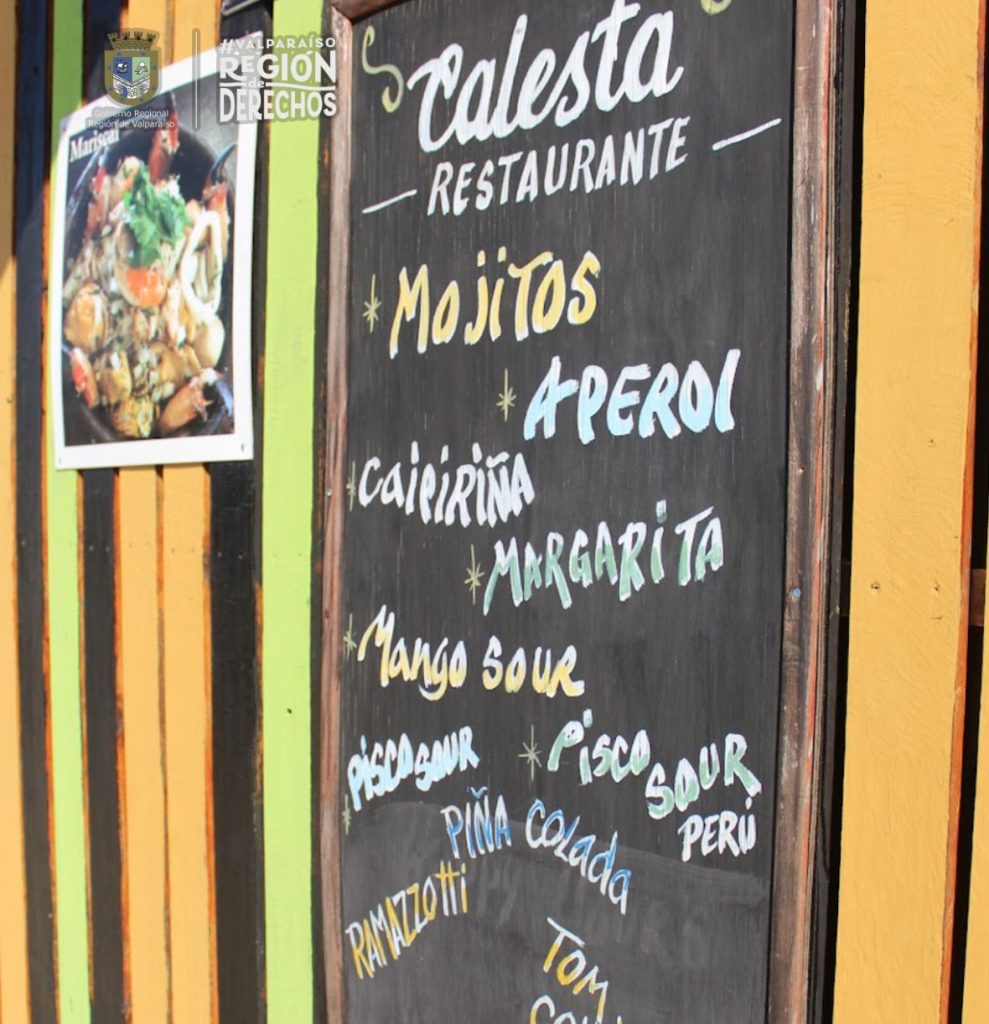 #VALPARAÍSO
REGIÓN
de
DERECHOS
Gobierno Regional
Región de Valparaíso
Mariscal
Calesta
RESTAURANTE
MOJITOS
APEROl
CAIPIRIÑA
MARGARITA
Mango SOUR
PISCO SOUR
PISCO SOUR
PERÚ
PIÑA COLADA
RAMAZZOTTI
TOM